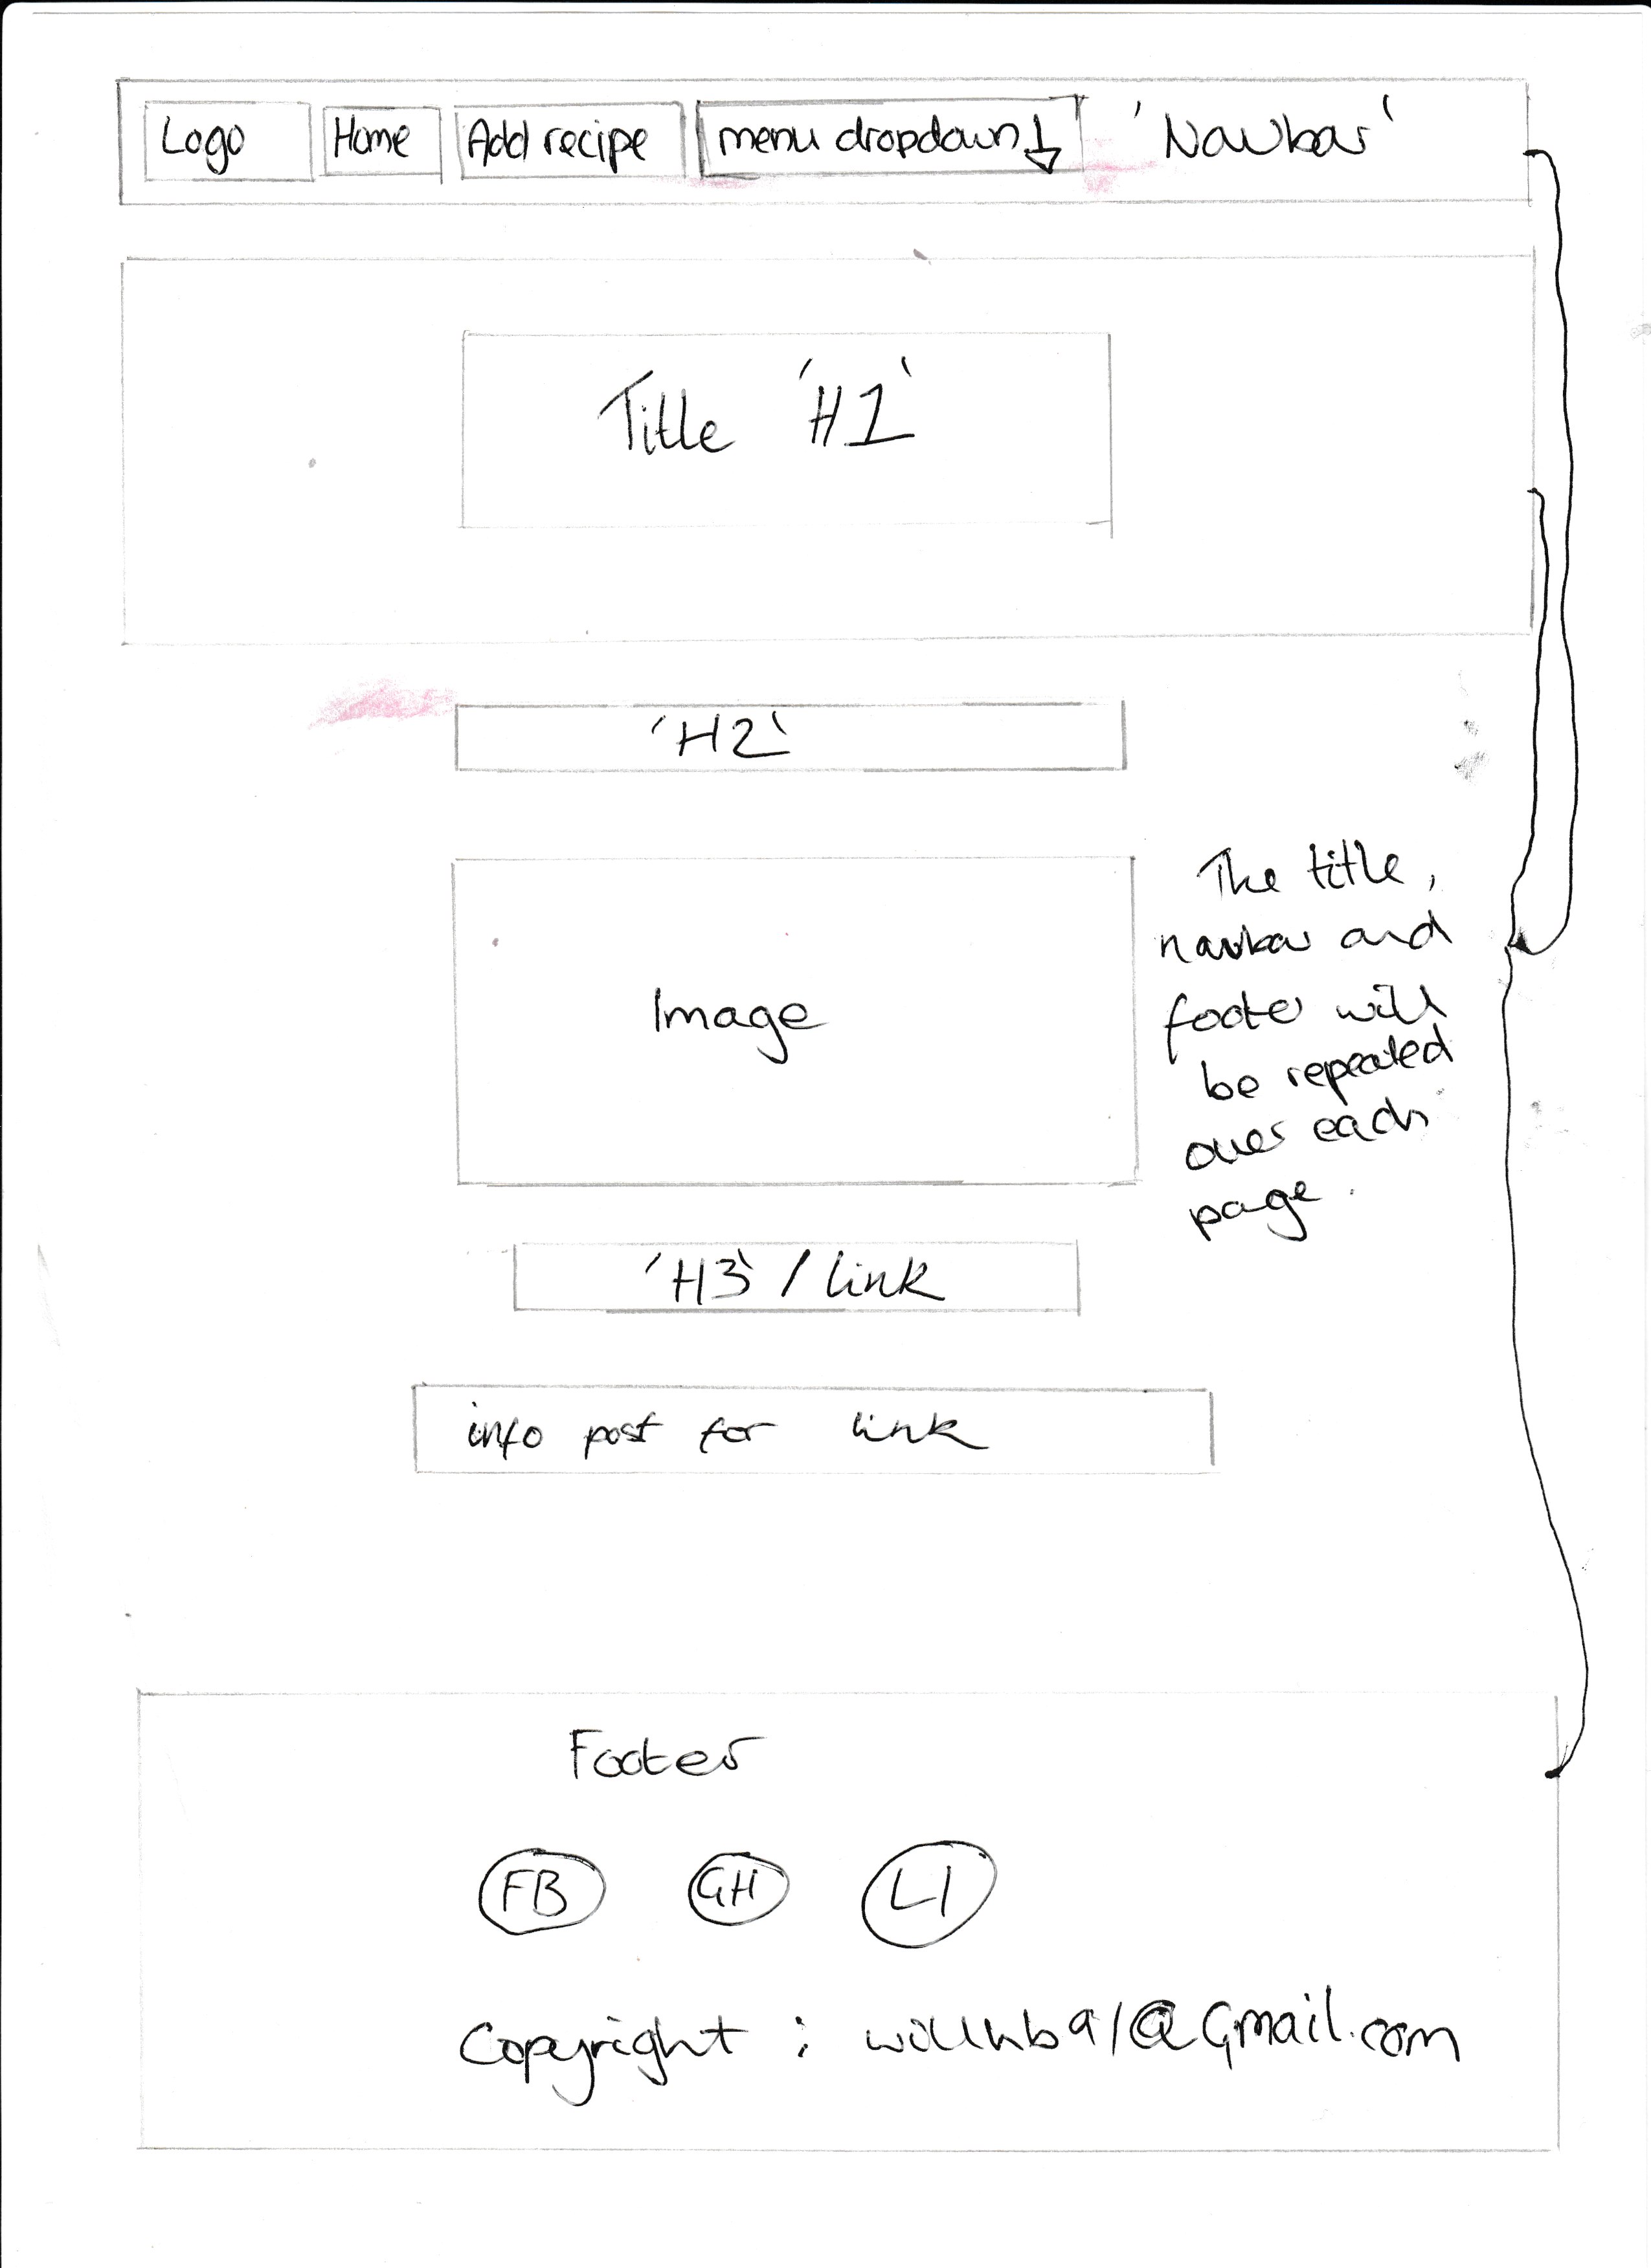 Logo Home Add recipe menu dropdown 'Navbar'
Title 'H1'
'H2'
Image
The title,
navbar and
footer will
be repeated
over each
page.
'H3' / link
info post for link
Footer
FB GH LI
Copyright : @Gmail.com